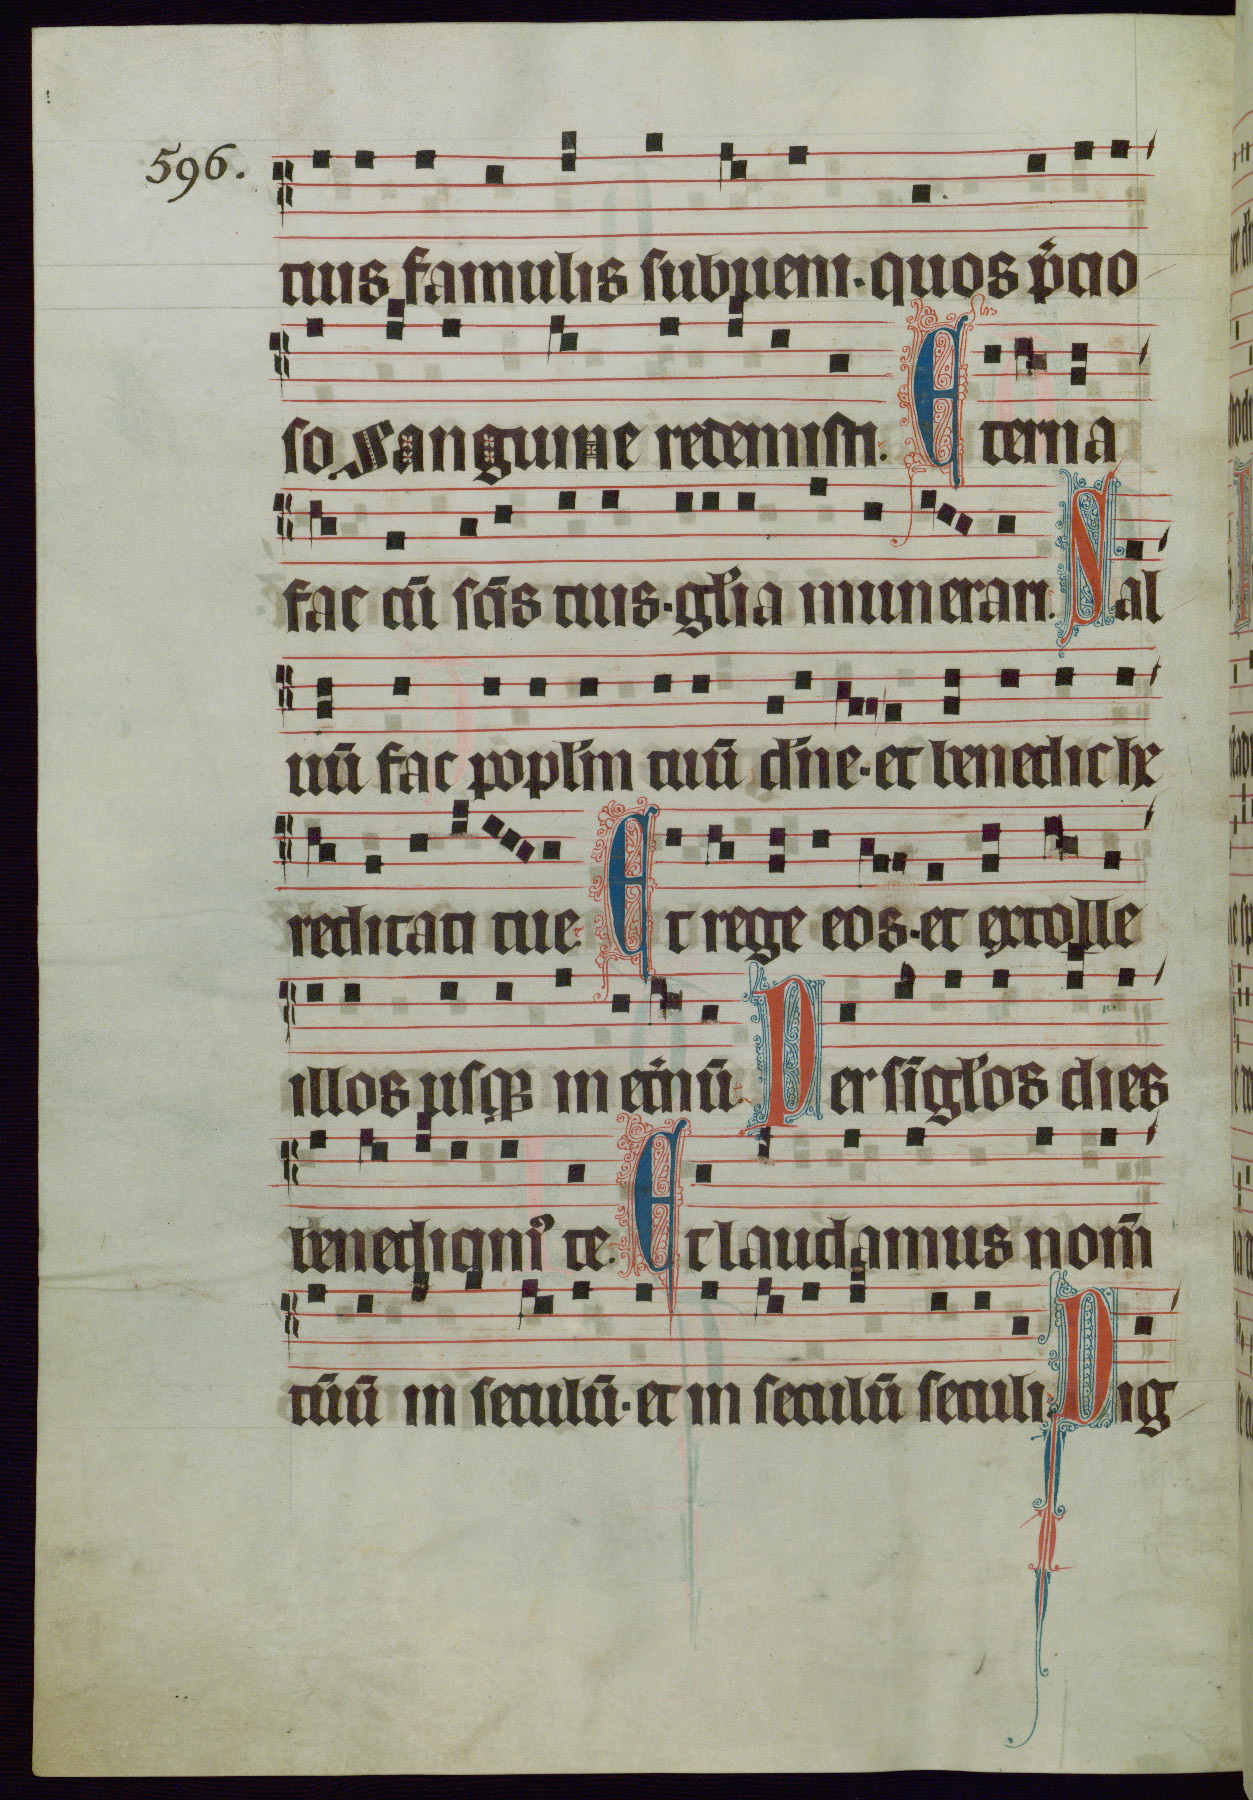 596.
tuis famulis subueni · quos p̄cio
so sanguine redemisti. Eterna
fac cū sc̄is tuis · gl̄ia munerari. Sal
uū fac popl̄m tuū dn̄e · et benedic he
reditati tue. Et rege eos · et extolle
illos usqꝫ in et̄nū. Per singl̄os dies
benedicimꝰ te. Et laudamus nom̄
tūū in seculū · et in seculū seculi. Dig